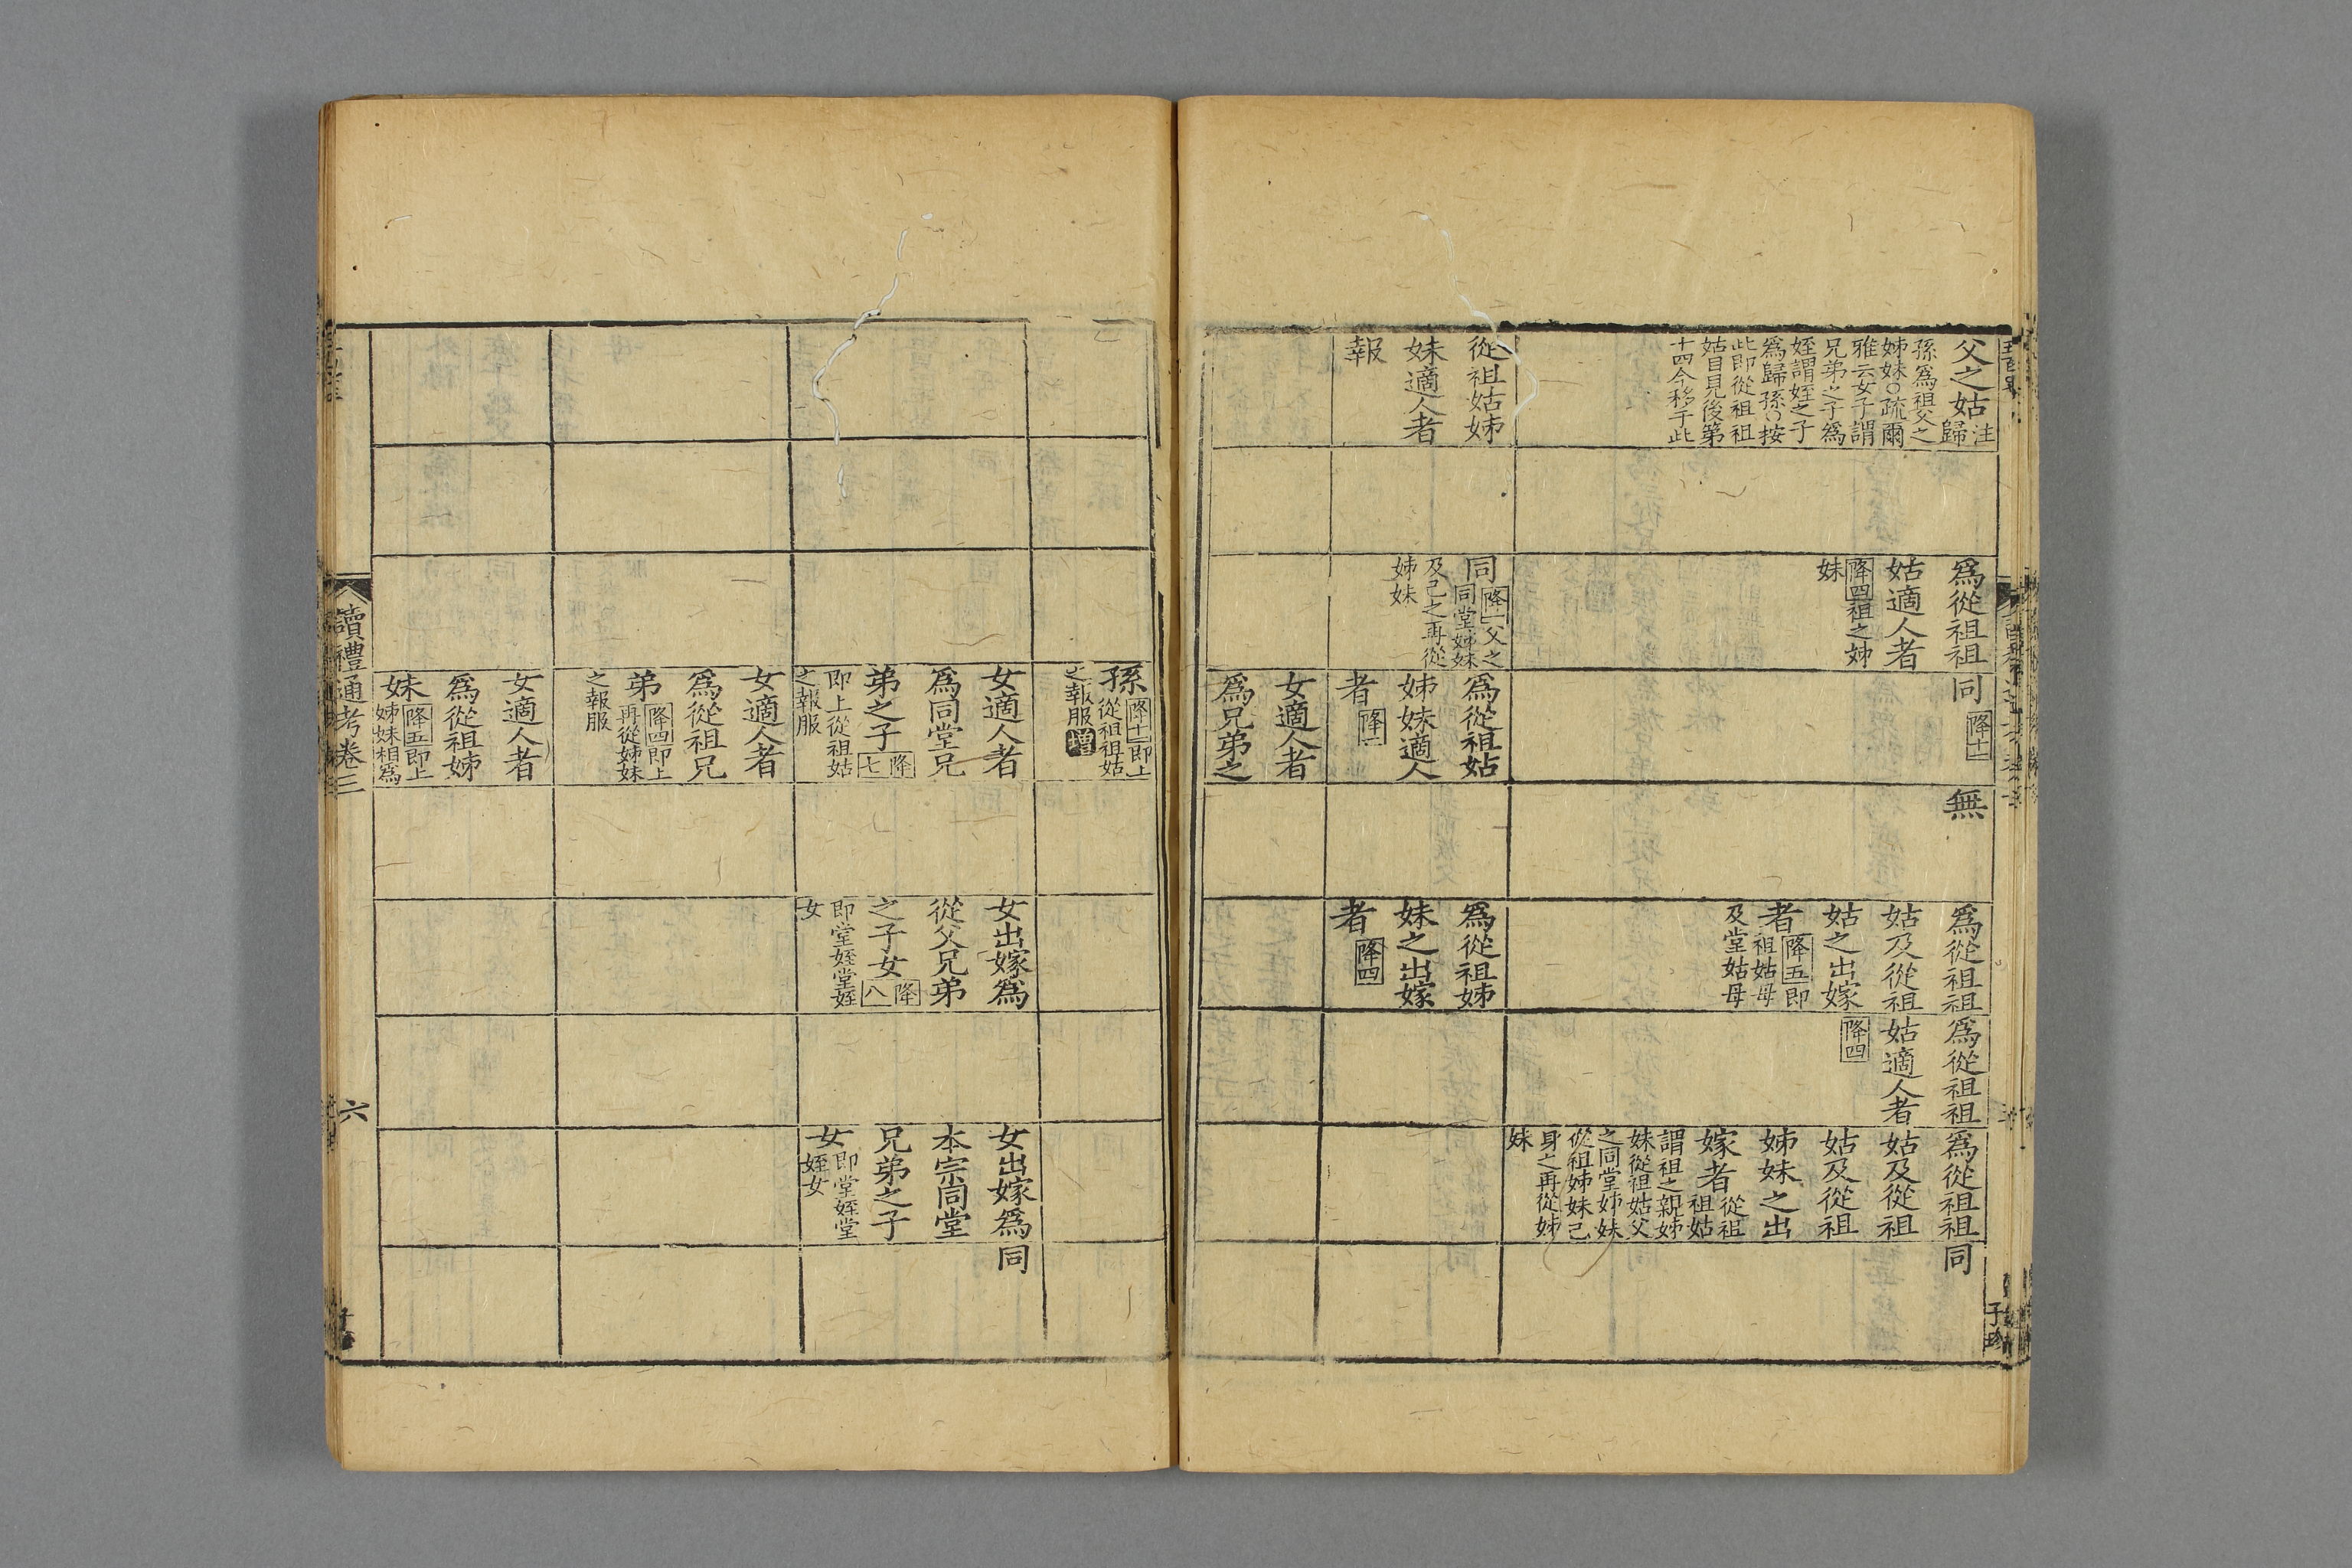 父之姑
注
歸
孫爲祖父之
姊妹○疏爾
雅云女子謂
兄弟之子爲
姪謂姪之子
爲歸孫○按
此即從祖祖
姑自見後第
十四今移于此
爲從祖祖
姑適人者
降四祖之姊
妹
同
降十一
無
爲從祖祖
姑及從祖
姑之出嫁
者
降五即
祖姑母
及堂姑母
爲從祖祖
姑適人者
降四
爲從祖祖
姑及從祖
姑及從祖
姊妹之出
嫁者
從祖
祖姑
謂祖之親姊
妹從祖姑父
之同堂姊妹
從祖姊妹己
身之再從姊
妹
同
從祖姑姊
妹適人者
報
同
降一父之
同堂姊妹
及己之再從
姊妹
爲從祖姑
姊妹適人
者
降二
爲從祖姊
妹之出嫁
者
降四
女適人者
爲兄弟之
孫
降十一即上
從祖祖姑
之報服
增
女適人者
爲同堂兄
弟之子
降七
即上從祖姑
之報服
女出嫁爲
從父兄弟
之子女
降八
即堂姪堂姪
女
女出嫁爲
本宗同堂
兄弟之子
女
即堂姪堂
姪女
同
女適人者
爲從祖兄
弟
降四即上
再從姊妹
之報服
女適人者
爲從祖姊
妹
降五即上
姊妹相爲
讀禮通考卷三
六
子珍